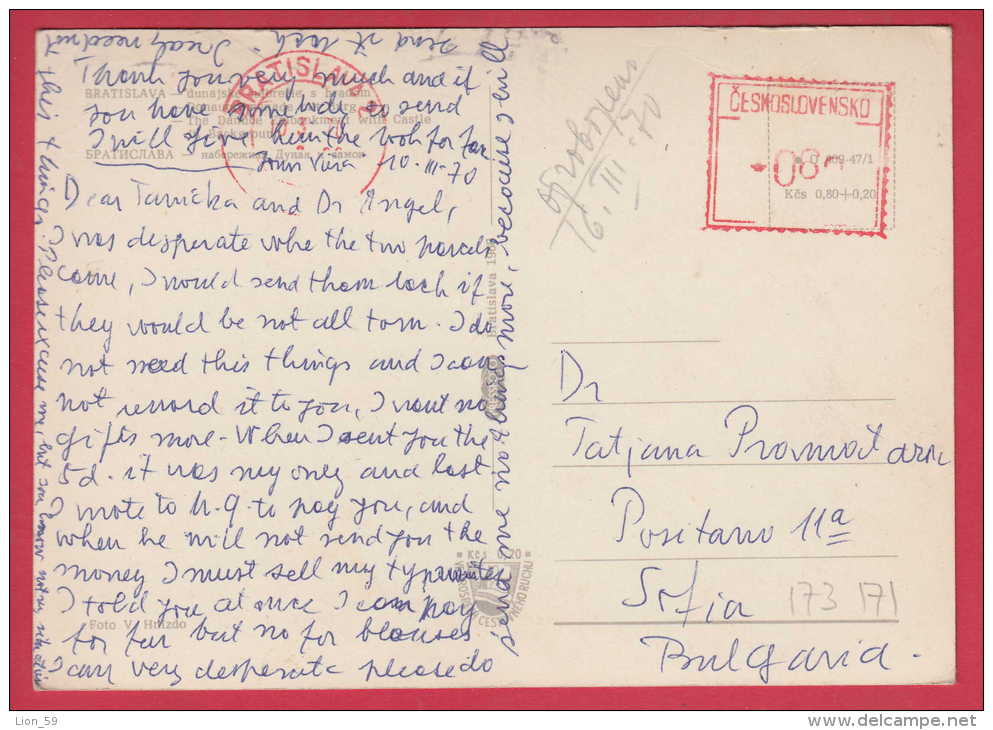 I realy need not
send it back.
Thank you very much and if
you have somebody to send
I will give him the look for far
Your Viera 10-III-70
BRATISLAVA – dunajské nábrežie s hradom
the Danube Embankment with Castle
in Background
БРАТИСЛАВА – набережная Дуная и замок
BRATISLAVA
Dear Tanička and Dr Angel,
I was desperate whe the two parcels
came, I would send them back if
they would be not all torn. I do
not need this things and I can
not reward it to you, I want no
gifts more. When I sent you the
5d. it was my only and last
I wrote to N.Y. to pay you, and
when he will not send you the
money I must sell my typewriter
I told you at once I can pay
for fur but no for blouses
I am very desperate please do
send me not things more, because I will
this things. Please excuse me, but you know my situation
Foto V. Hnízdo
Bratislava
Kčs 0,20
16. III 70
ČESKOSLOVENSKO
0 809-47/1
Kčs 0,80+0,20
Dr
Tatjana
Positano 11a
Sofia
173 171
Bulgaria.
Lion_59
www.delcampe.net